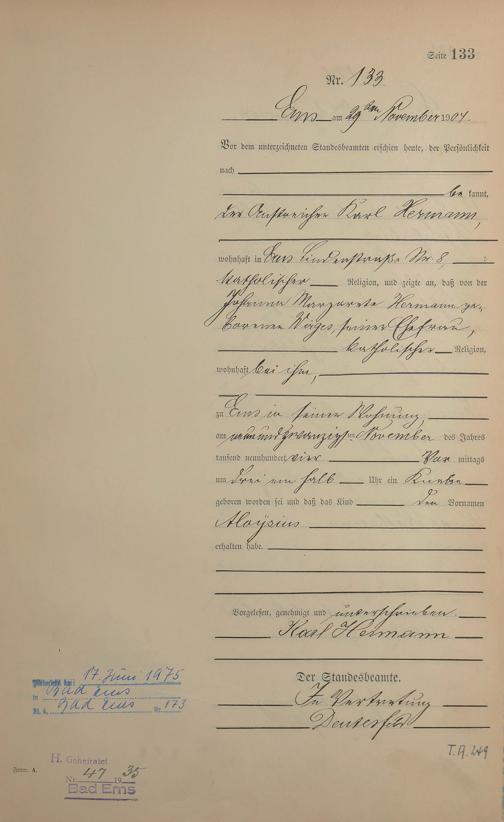 Seite 133
Nr. 133
Ems am 29ten November 1904.
Vor dem unterzeichneten Standesbeamten erschien heute, der Persönlichkeit
nach
bekannt,
der Anstreicher Karl Hermann,
wohnhaft in Ems Lindenstraße Nr. 8,
katholischer Religion, und zeigte an, daß von der
Johanna Margarete Hermann ge-
borenen seiner Ehefrau,
katholischer Religion,
wohnhaft bei ihm,
zu Ems in seiner Wohnung,
am neunundzwanzigsten November des Jahres
tausend neunhundert vier Vor mittags
um drei ein halb Uhr ein Knabe
geboren worden sei und daß das Kind den Vornamen
Aloysius
erhalten habe.
Vorgelesen, genehmigt und unterschrieben
Karl Hermann
Der Standesbeamte.
In Vertretung
17. Juni 1975
in Bad Ems
Bad Ems Nr. 173
H. Geheiratet
Nr. 47 1935
Bad Ems
Form. A.
T.A. 249